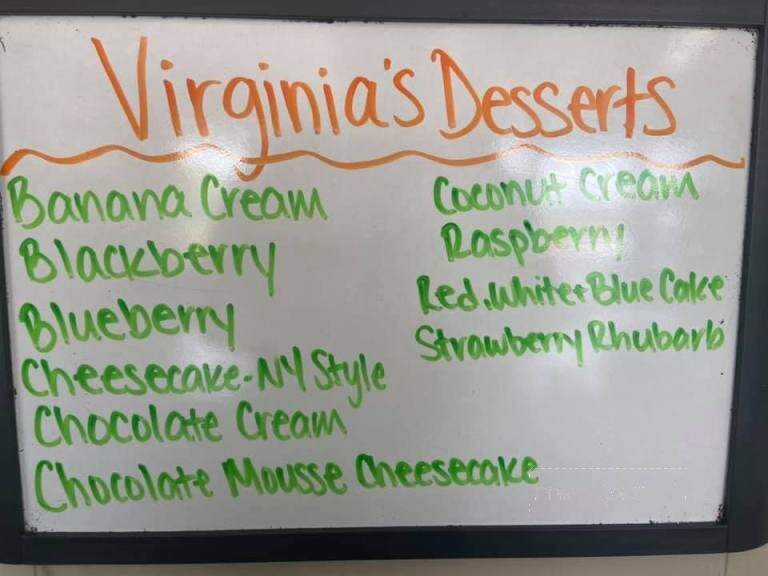 Virginia's Desserts
Banana Cream
Blackberry
Blueberry
Cheesecake-NY Style
Chocolate Cream
Chocolate Mousse Cheesecake
Coconut Cream
Raspberry
Red, White + Blue Cake
Strawberry Rhubarb